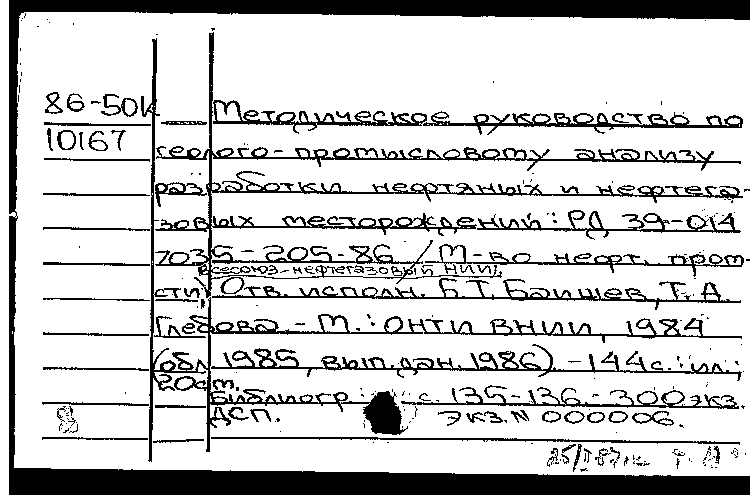 86-50к Методическое руководство по
10167 геолого-промысловому анализу
разработки нефтяных и нефтега-
зовых месторождений: РД 39-014
7035-205-86 / М-во нефт. пром-
Всесоюз. нефтегазовый НИИ;
сти, Отв. исполн. Б.Т. Баишев, Т.А.
Глебова. - М.: ОНТИ ВНИИ, 1984
(обл. 1985, вып.дан. 1986). - 144 с.: ил.;
20 см.
Библиогр.: с. 135-136. - 300 экз.
ДСП. Экз. N 000006.